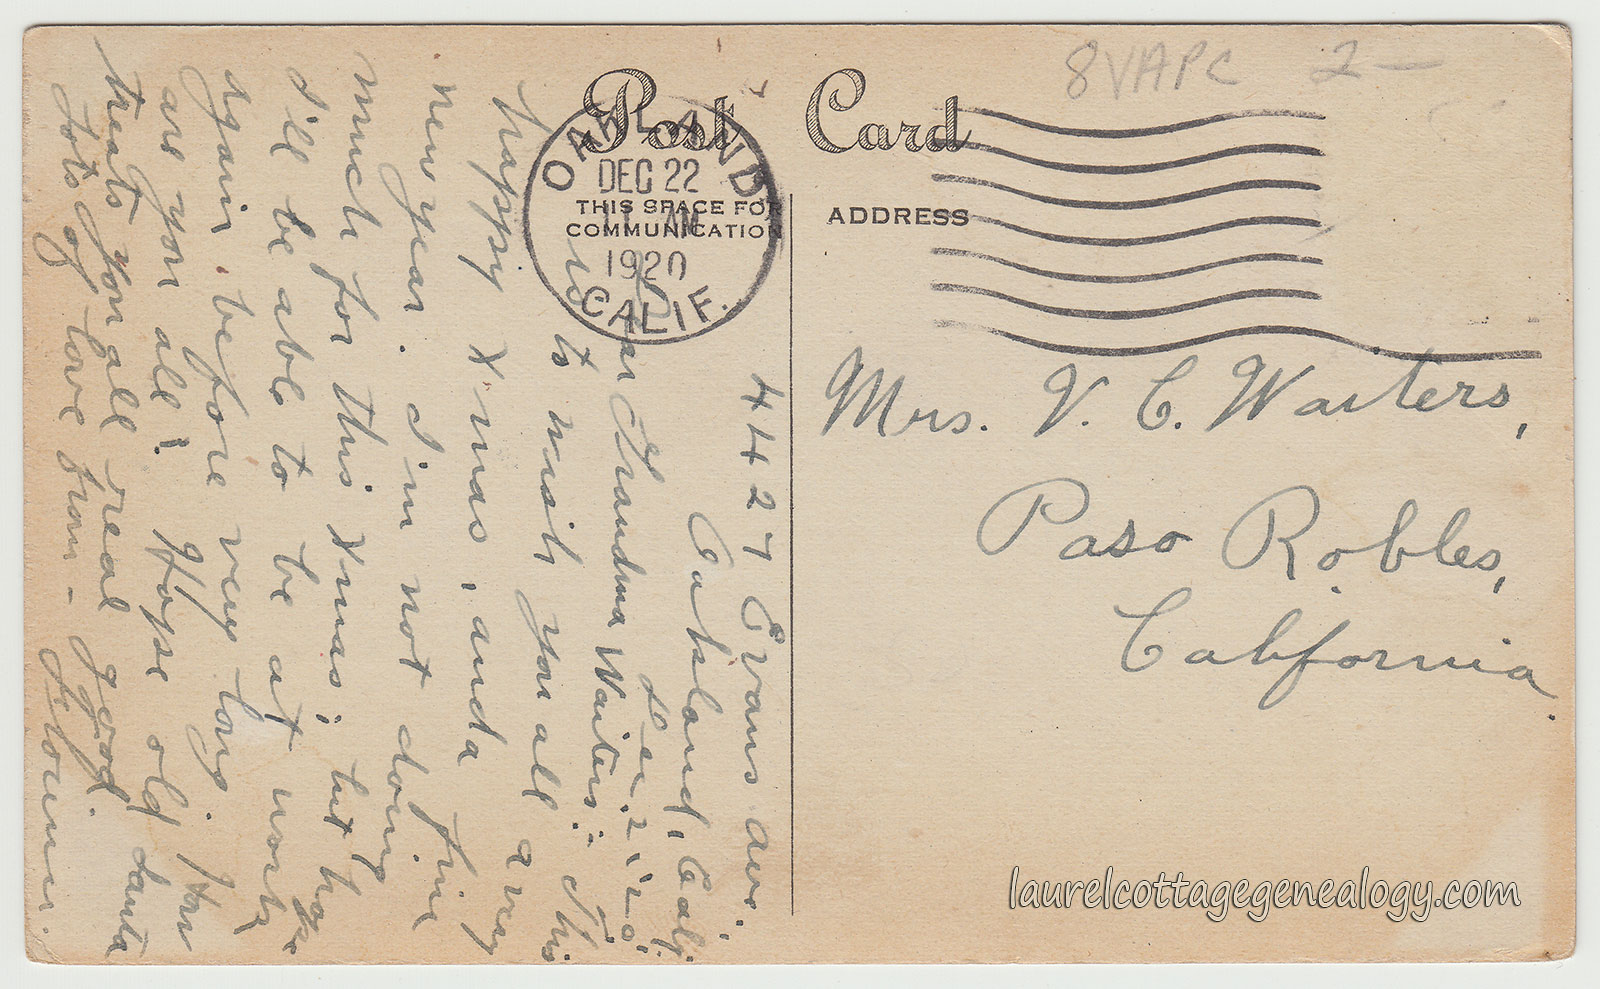 8VAPC 2—
Post Card
THIS SPACE FOR
COMMUNICATION
ADDRESS
OAKLAND,
DEC 22
11 AM
1920
CALIF.
4427 Evans ave.,
Oakland, Calif.
Dec. 21, 20.
Dear Grandma Waiters:- This
is to wish you all a very
happy Xmas, and a
new year. I'm not doing fine
much for this Xmas; but hope
I'll be able to be at work
again before very long. How
are you all? Hope old Santa
treats you all real good.
Lots of love from -
Mrs. V. C. Waiters,
Paso Robles,
California.
laurelcottagegenealogy.com